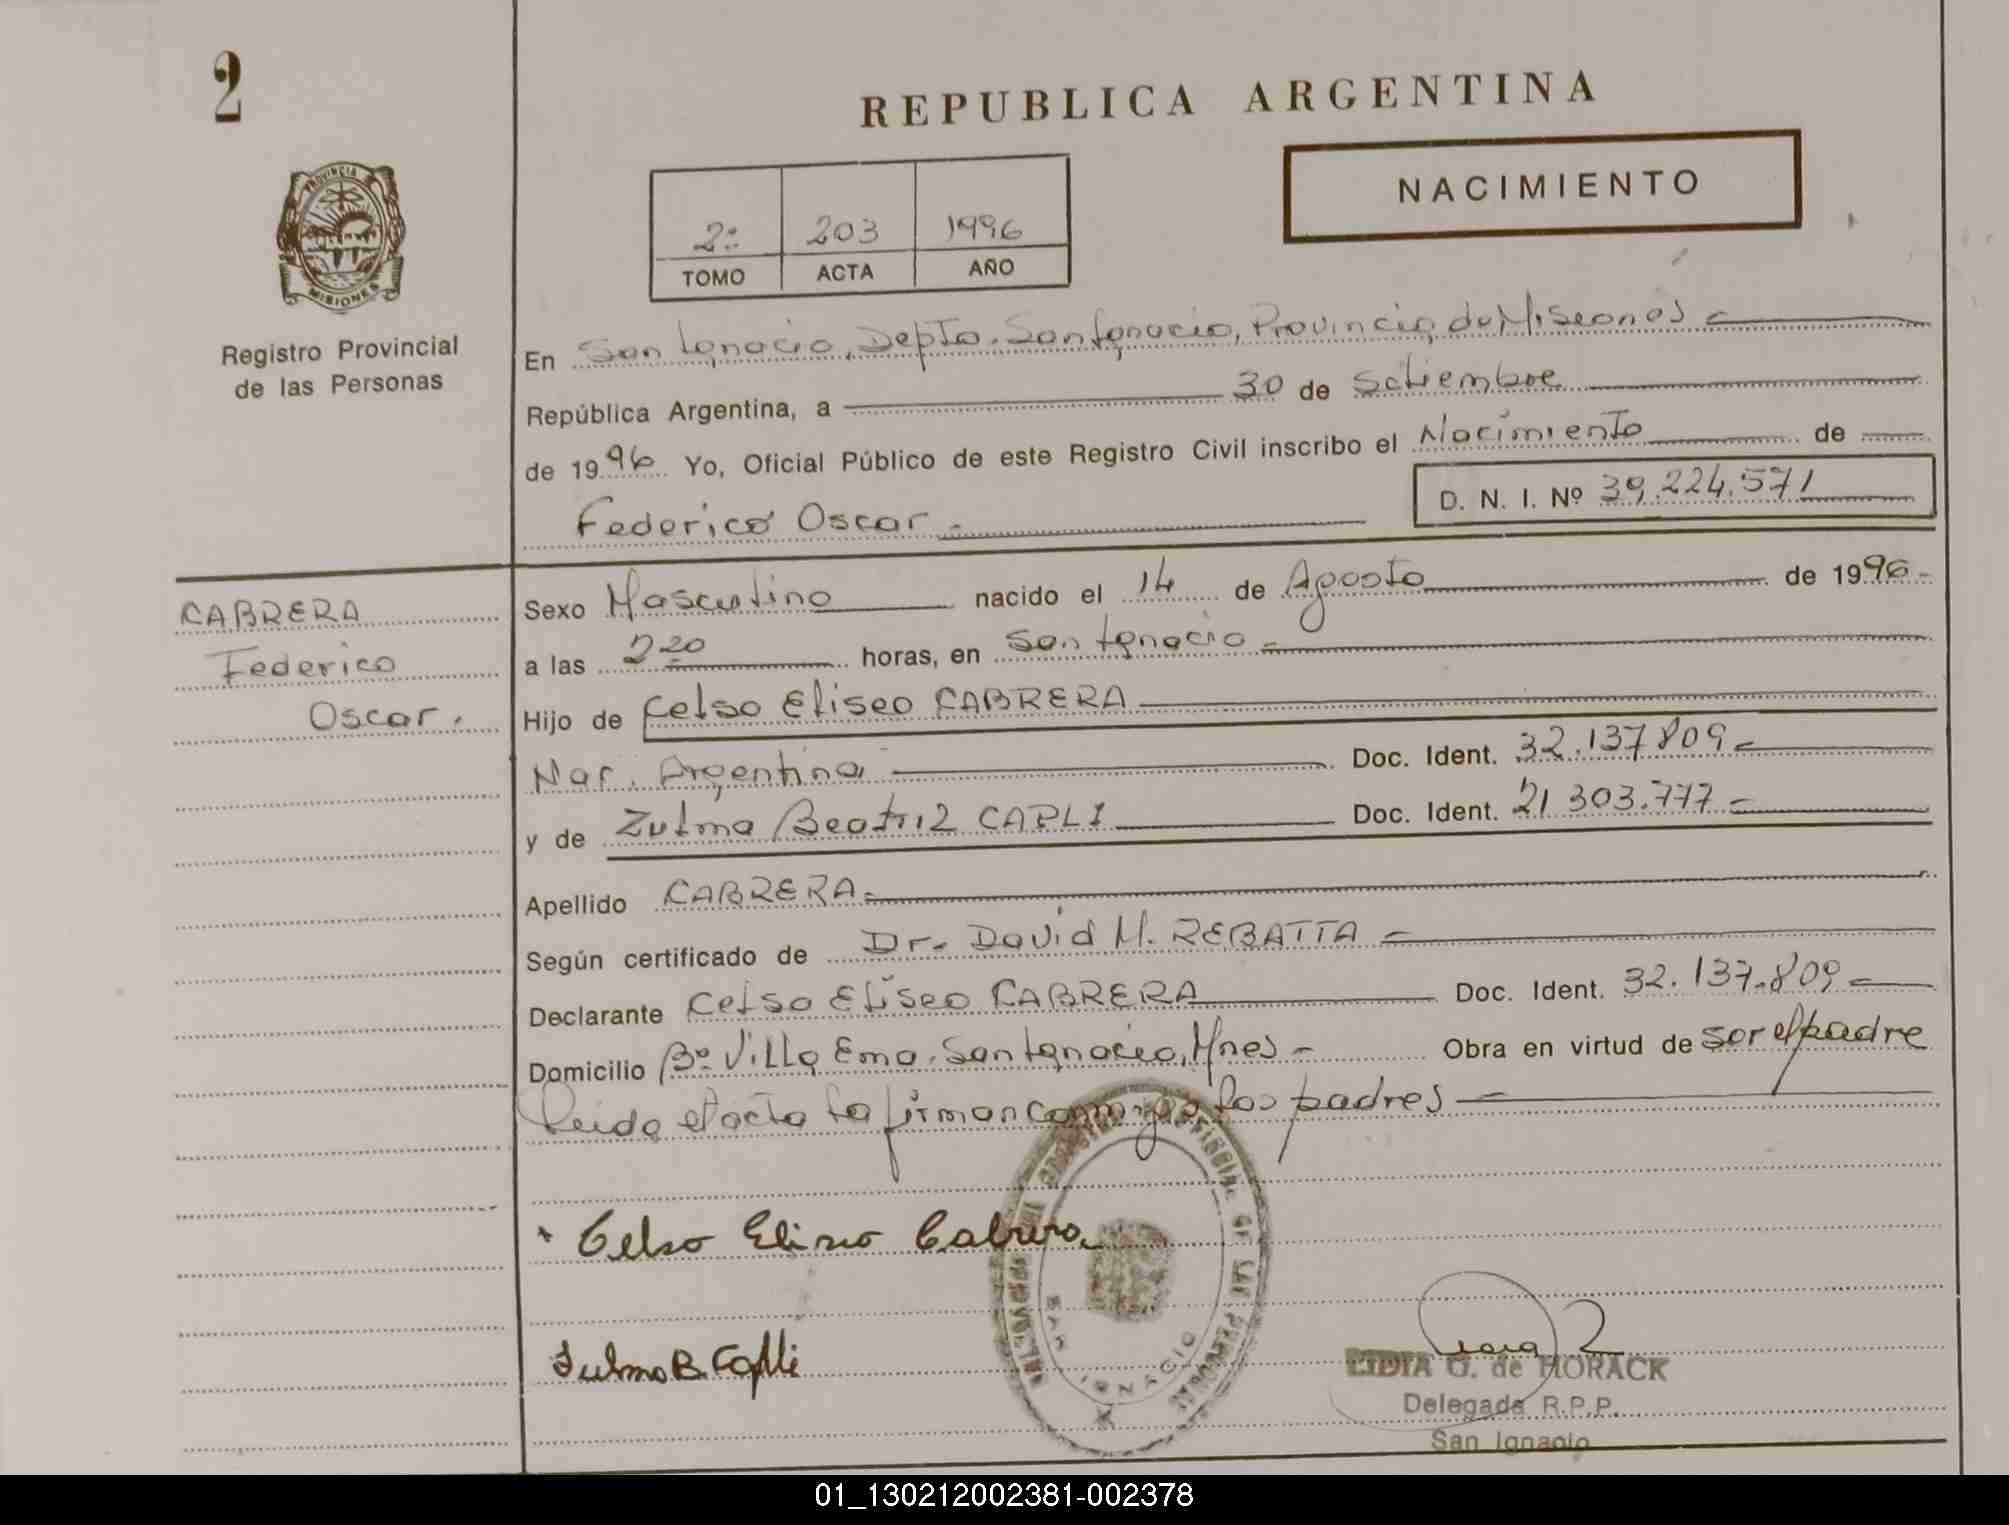 2
REPUBLICA ARGENTINA
NACIMIENTO
2º 203 1996
TOMO ACTA AÑO
PROVINCIA
MISIONES
Registro Provincial
de las Personas
En San Ignacio, Depto. San Ignacio, Provincia de Misiones
República Argentina, a 30 de Setiembre
de 1996 Yo, Oficial Público de este Registro Civil inscribo el Nacimiento de
Federico Oscar.- D. N. I. Nº 39.224.571
CABRERA
Federico
Oscar.
Sexo Masculino nacido el 14 de Agosto de 1996.-
a las 2 20 horas, en San Ignacio.-
Hijo de Celso Eliseo CABRERA
Nac. Argentina Doc. Ident. 32.137.809.-
y de Zulma Beatriz CAPLI Doc. Ident. 21.303.777.-
Apellido CABRERA.-
Según certificado de Dr. David M. REBATTA.-
Declarante Celso Eliseo CABRERA Doc. Ident. 32.137.809.-
Domicilio Bº Villa Ema. San Ignacio, Mnes.- Obra en virtud de ser el padre
Leida el acta la firman conmigo los padres
Celso Eliseo Cabrera
Zulma B. Capli
SAN IGNACIO
LIDIA G. de HORACK
Delegada R.P.P.
San Ignacio
01_130212002381-002378